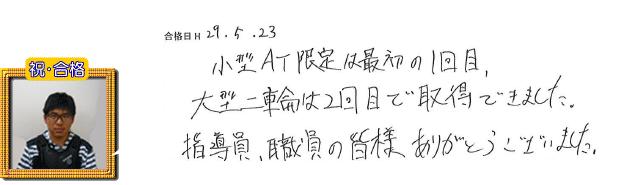 合格日 H 29.5.23
小型AT限定は最初の1回目、
大型二輪は2回目で取得できました。
指導員、職員の皆様ありがとうございました。
祝・合格